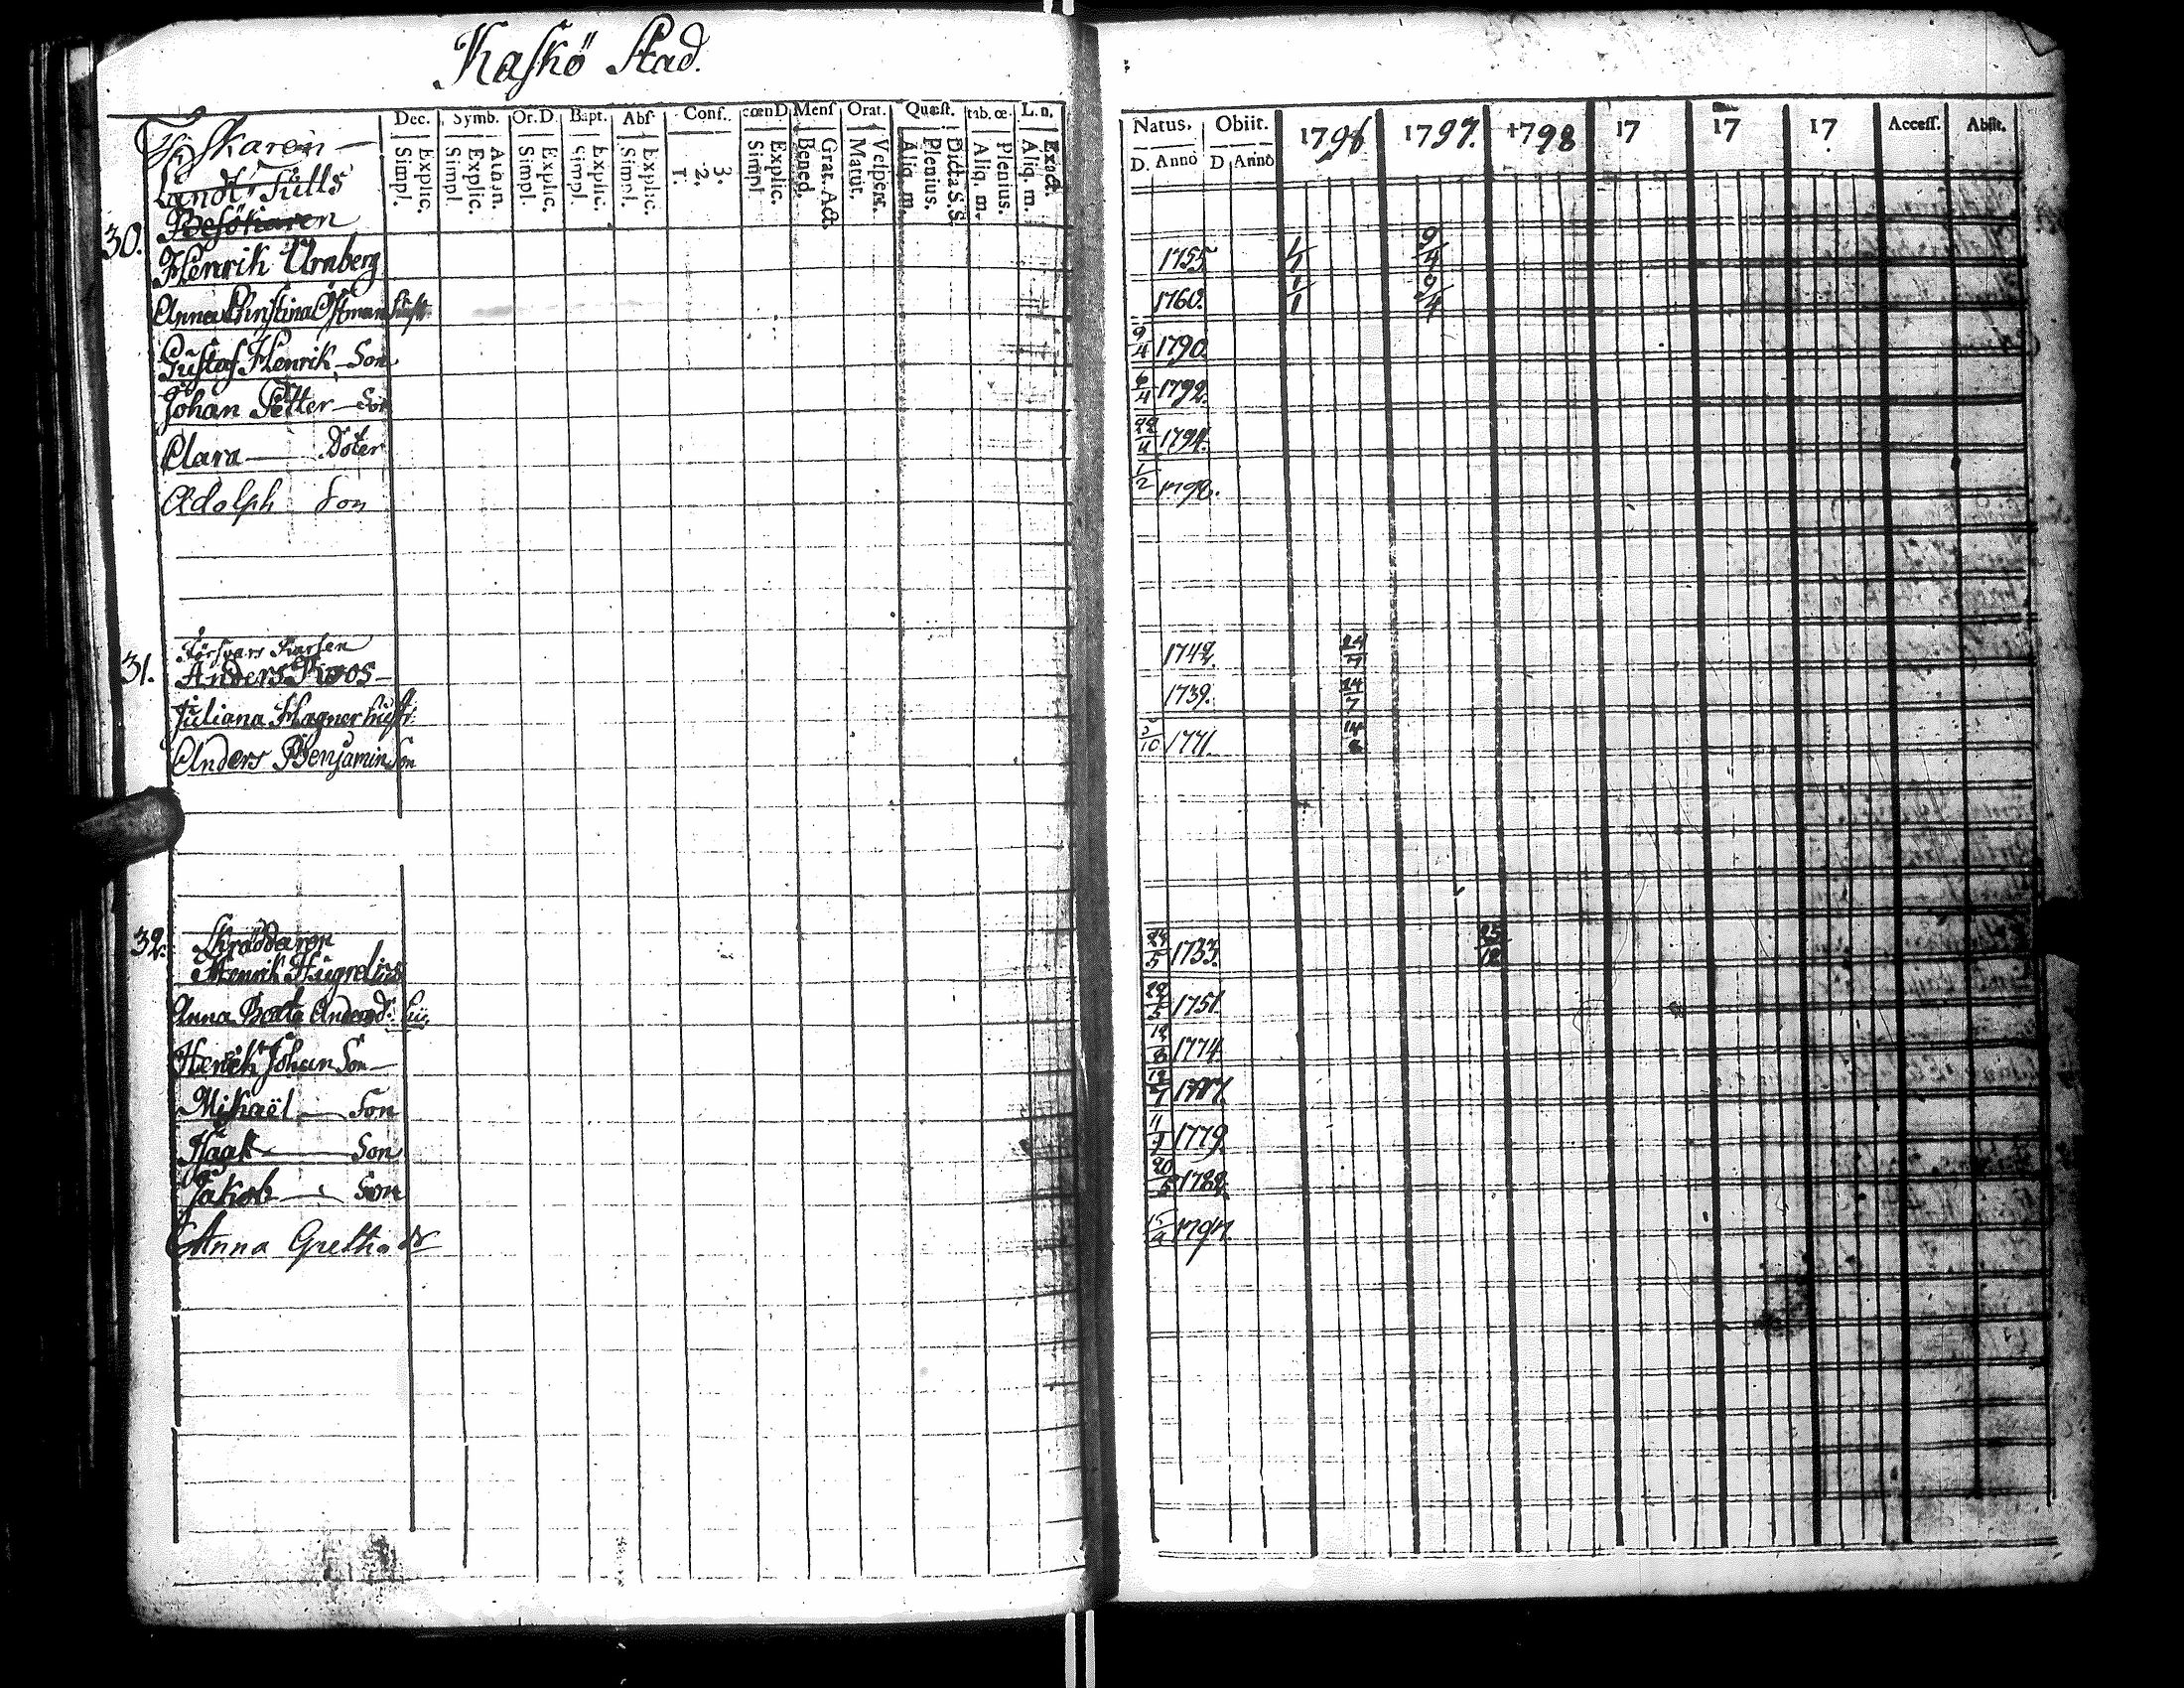 Kaskö Stad.
Dec. Symb. Or. D. Bapt. Abs. Conf. cœn D Mens Orat. Quæst. tab. œ. L. n.
Simpl. Explic. Simpl. Explic. Simpl. Explic. Simpl. Explic. Simpl. Explic. 1. 2. 3. Simpl. Explic. Bened. Grat. Act. Matut. Vesper. Aliq. m. Plenius. Dicta S. S. Aliq. m. Plenius. Aliq. m. Exact.
Natus. Obiit. 1796 1797. 1798 17 17 17 Access. Abiit.
D. Anno D. Anno
Landt Tulls
Besökaren
30. Henrik Urnberg 1755 1/1 9/4
Anna Christina Östman hustr. 1760. 1/1 9/4
Gustaf Henrik Son 9/4 1790.
Johan Petter Son 6/4 1792.
Clara Doter 1794.
Adolph Son 1/2 1798.
31. Försvars Karlen
Anders Roos 1742. 14/7
Juliana Hagner hustr. 1739. 14/7
Anders Benjamin Son 5/10 1771. 14/8
32. Skräddaren
Henrik Hugrelius 24/5 1733. 25/12
Anna Anders dr. hu. 1751.
Henrik Johan Son 1774.
Mikaël Son
Isaak Son 1779.
Jakob Son 20/5 1782.
Anna Gretha dr 1797.